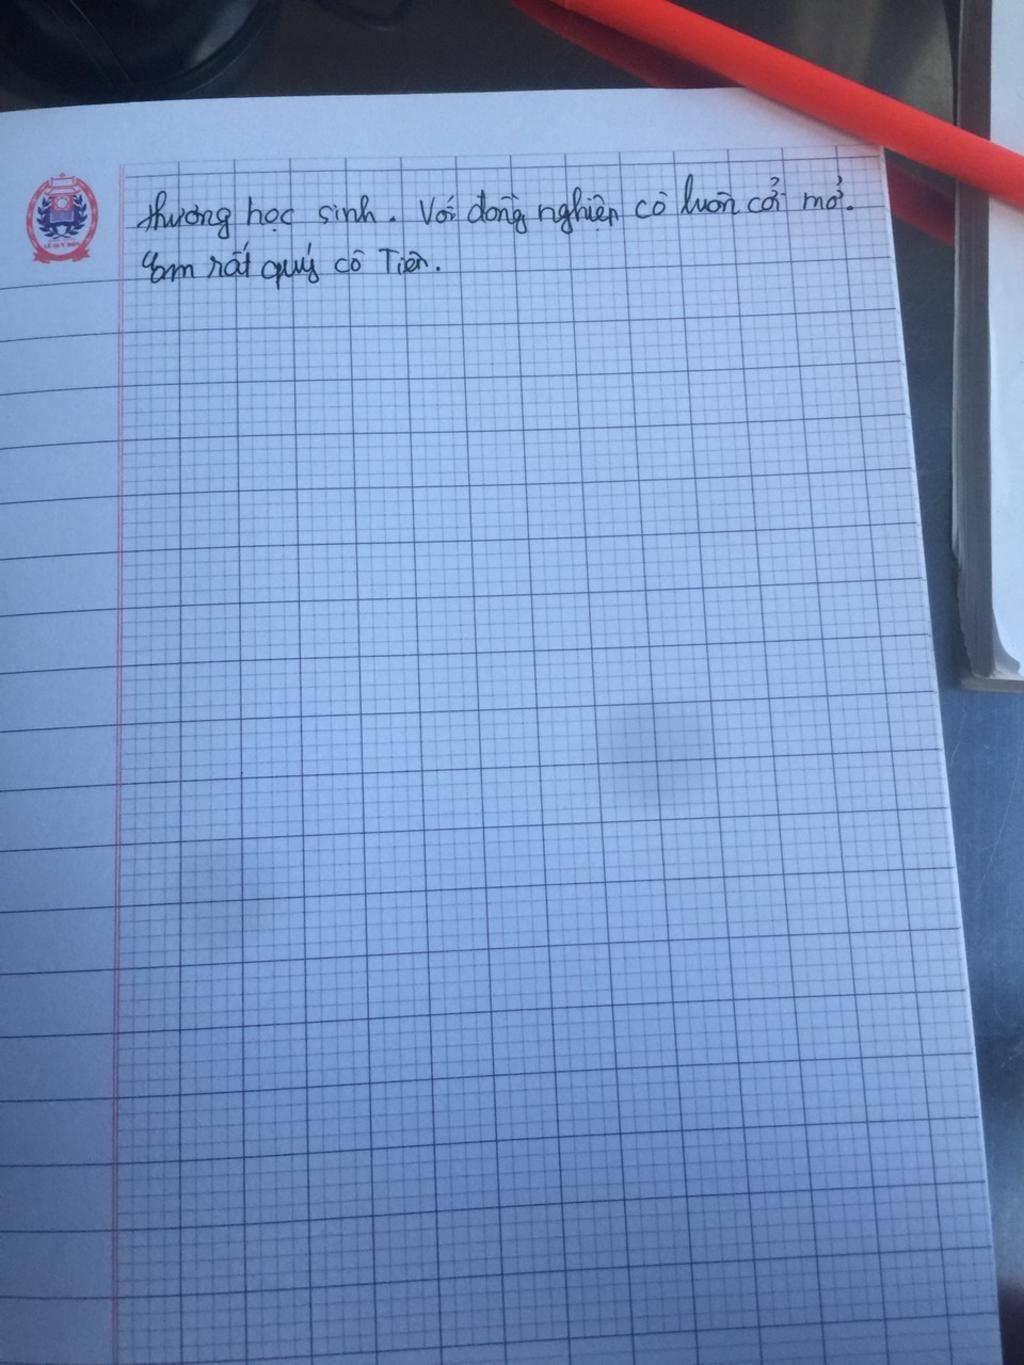 thương học sinh. Với đồng nghiệp cô luôn cởi mở.
Em rất quý cô Tiên.
LÊ QUÝ ĐÔN